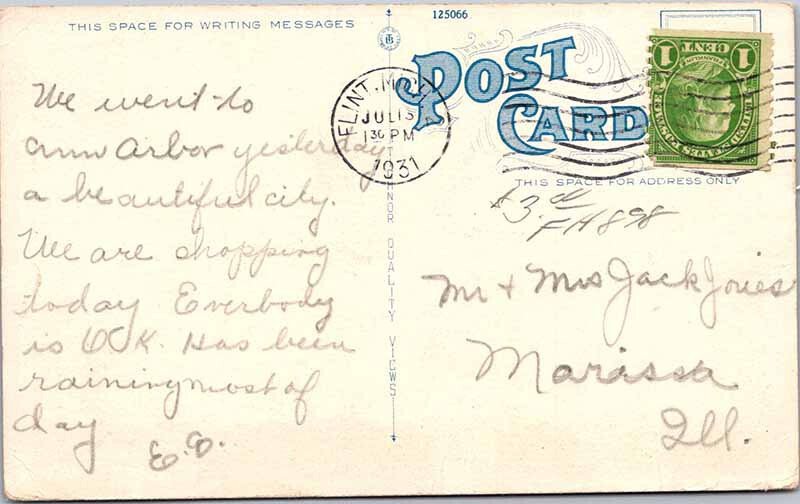 THIS SPACE FOR WRITING MESSAGES
125066
POST
CARD
1 CENT 1
FLINT, MICH.
JUL 13
1 30 PM
1931
THIS SPACE FOR ADDRESS ONLY
$3.00
FH898
We went to
ann Arbor yesterday
a beautiful city.
We are shopping
today Everbody
is O.K. Has been
raining most of
day
E.D.
NOR QUALITY VIEWS
Mr + Mrs Jack Jones
Marissa
Ill.